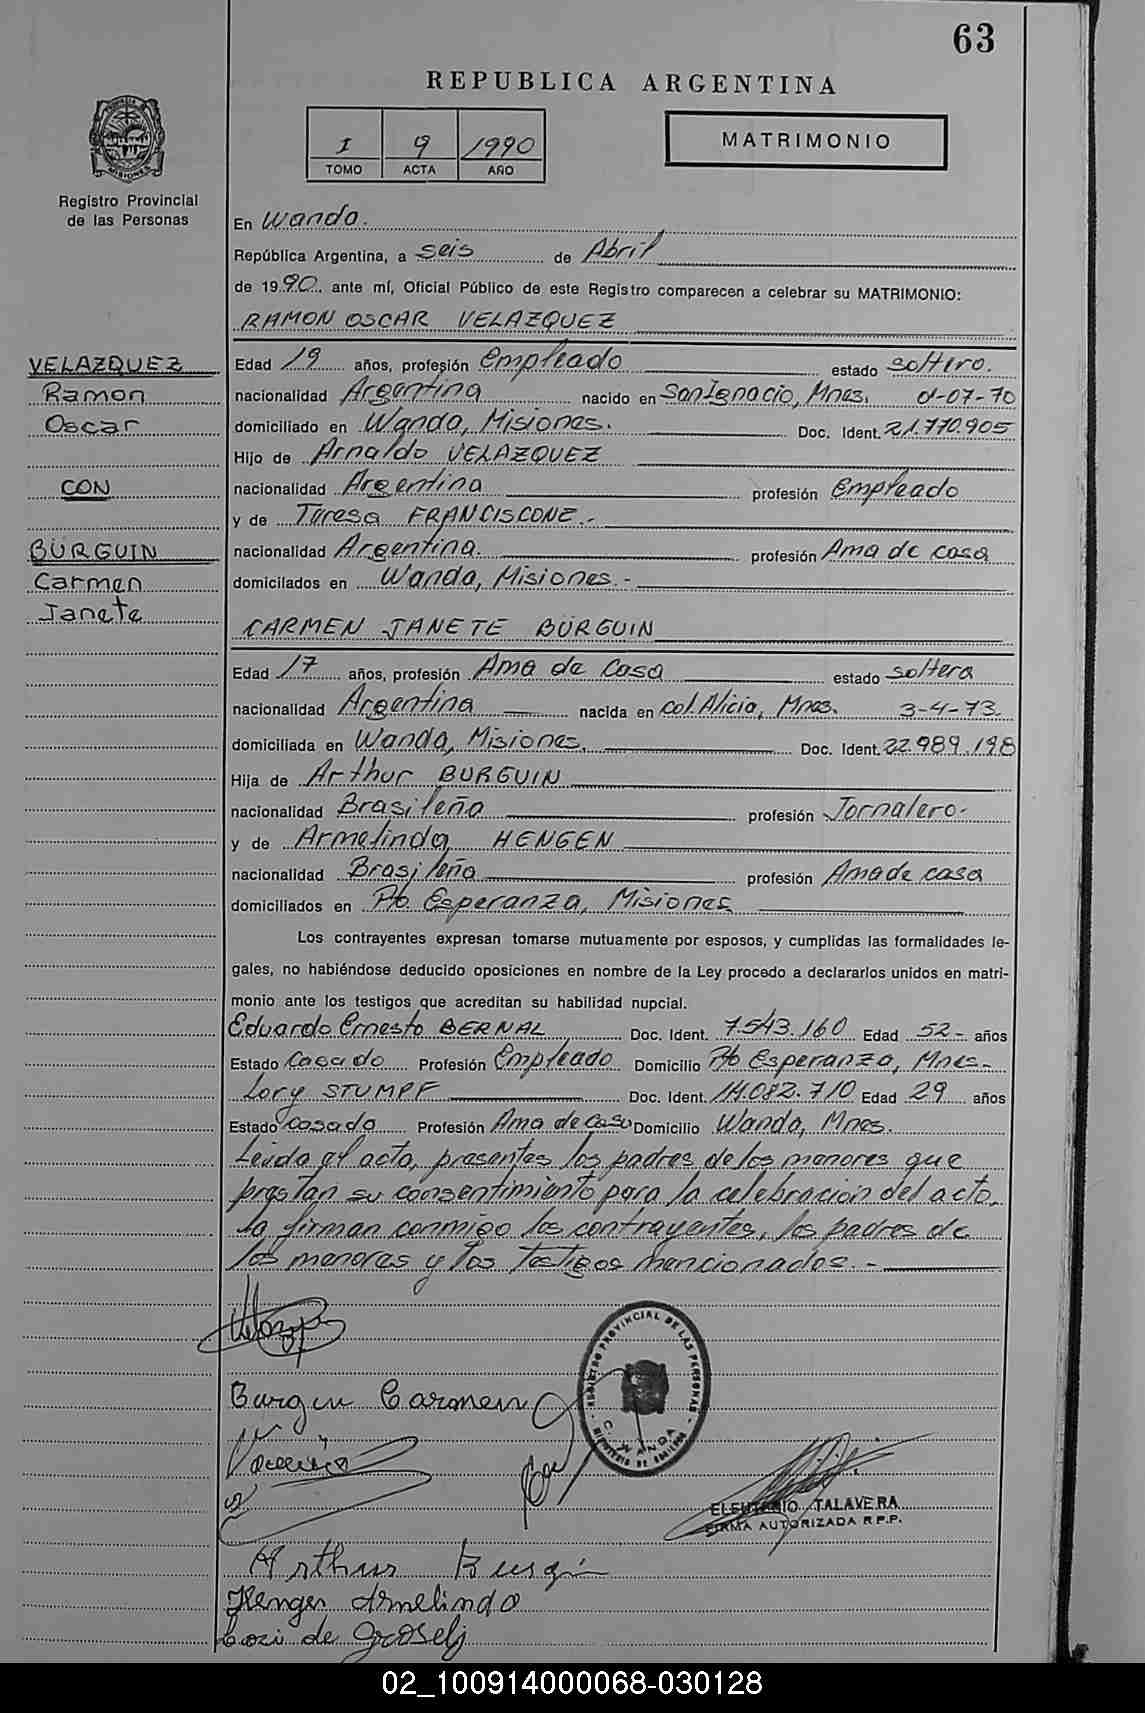 63
REPUBLICA ARGENTINA
I 9 1990
TOMO ACTA AÑO
MATRIMONIO
Registro Provincial
de las Personas
En Wanda.
República Argentina, a seis de Abril
de 1990. ante mí, Oficial Público de este Registro comparecen a celebrar su MATRIMONIO:
RAMON OSCAR VELAZQUEZ
VELAZQUEZ
Ramon
Oscar
CON
BÜRGUIN
Carmen
Janete
Edad 19 años, profesión Empleado estado soltero.
nacionalidad Argentina nacido en San Ignacio, Mnes. -07-70
domiciliado en Wanda, Misiones. Doc. Ident. 21.770.905
Hijo de Arnaldo VELAZQUEZ
nacionalidad Argentina profesión Empleado
y de Teresa FRANCISCONE.-
nacionalidad Argentina. profesión Ama de casa
domicilados en Wanda, Misiones.-
CARMEN JANETE BÜRGUIN
Edad 17 años, profesión Ama de Casa estado soltera
nacionalidad Argentina nacida en Col. Alicia, Mnes. 3-4-73.
domiciliada en Wanda, Misiones. Doc. Ident. 22.989.198
Hija de Arthur BURGUIN
nacionalidad Brasileña profesión Jornalero.
y de Armelinda HENGEN
nacionalidad Brasileña profesión Ama de casa
domiciliados en Pto Esperanza, Misiones
Los contrayentes expresan tomarse mutuamente por esposos, y cumplidas las formalidades le-
gales, no habiéndose deducido oposiciones en nombre de la Ley procedo a declararlos unidos en matri-
monio ante los testigos que acreditan su habilidad nupcial.
Eduardo Ernesto BERNAL Doc. Ident. 7.543.160 Edad 52- años
Estado Casado Profesión Empleado Domicilio Pto Esperanza, Mnes-
Lory STUMPF Doc. Ident. 14.082.710 Edad 29 años
Estado Casada Profesión Ama de Casa Domicilio Wanda, Mnes.
Leida el acta, presentes los padres de los menores que
prestan su consentimiento para la celebración del acto,
la firman conmigo los contrayentes, los padres de
los menores y los testigos mencionados.-
Burgin Carmen
REGISTRO PROVINCIAL DE LAS PERSONAS
WANDA
ELEUTERIO TALAVERA
FIRMA AUTORIZADA R.P.P.
Arthur Burgin
Hengen Armelinda
Lori de Groselj
02_100914000068-030128